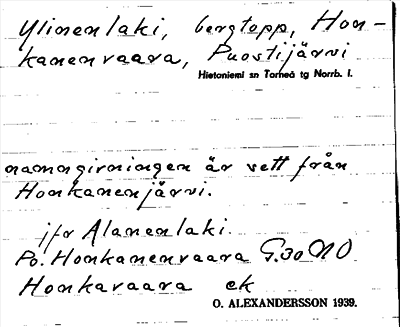 Ylinenlaki, bergtopp, Hon-
kanenvaara, Puostijärvi
Hietaniemi sn Torneå tg Norrb. l.
namngivningen är sett från
Honkanenjärvi.
jfr Alanenlaki.
Po. Honkanenvaara G.30 NO
Honkavaara ek
O. ALEXANDERSSON 1939.